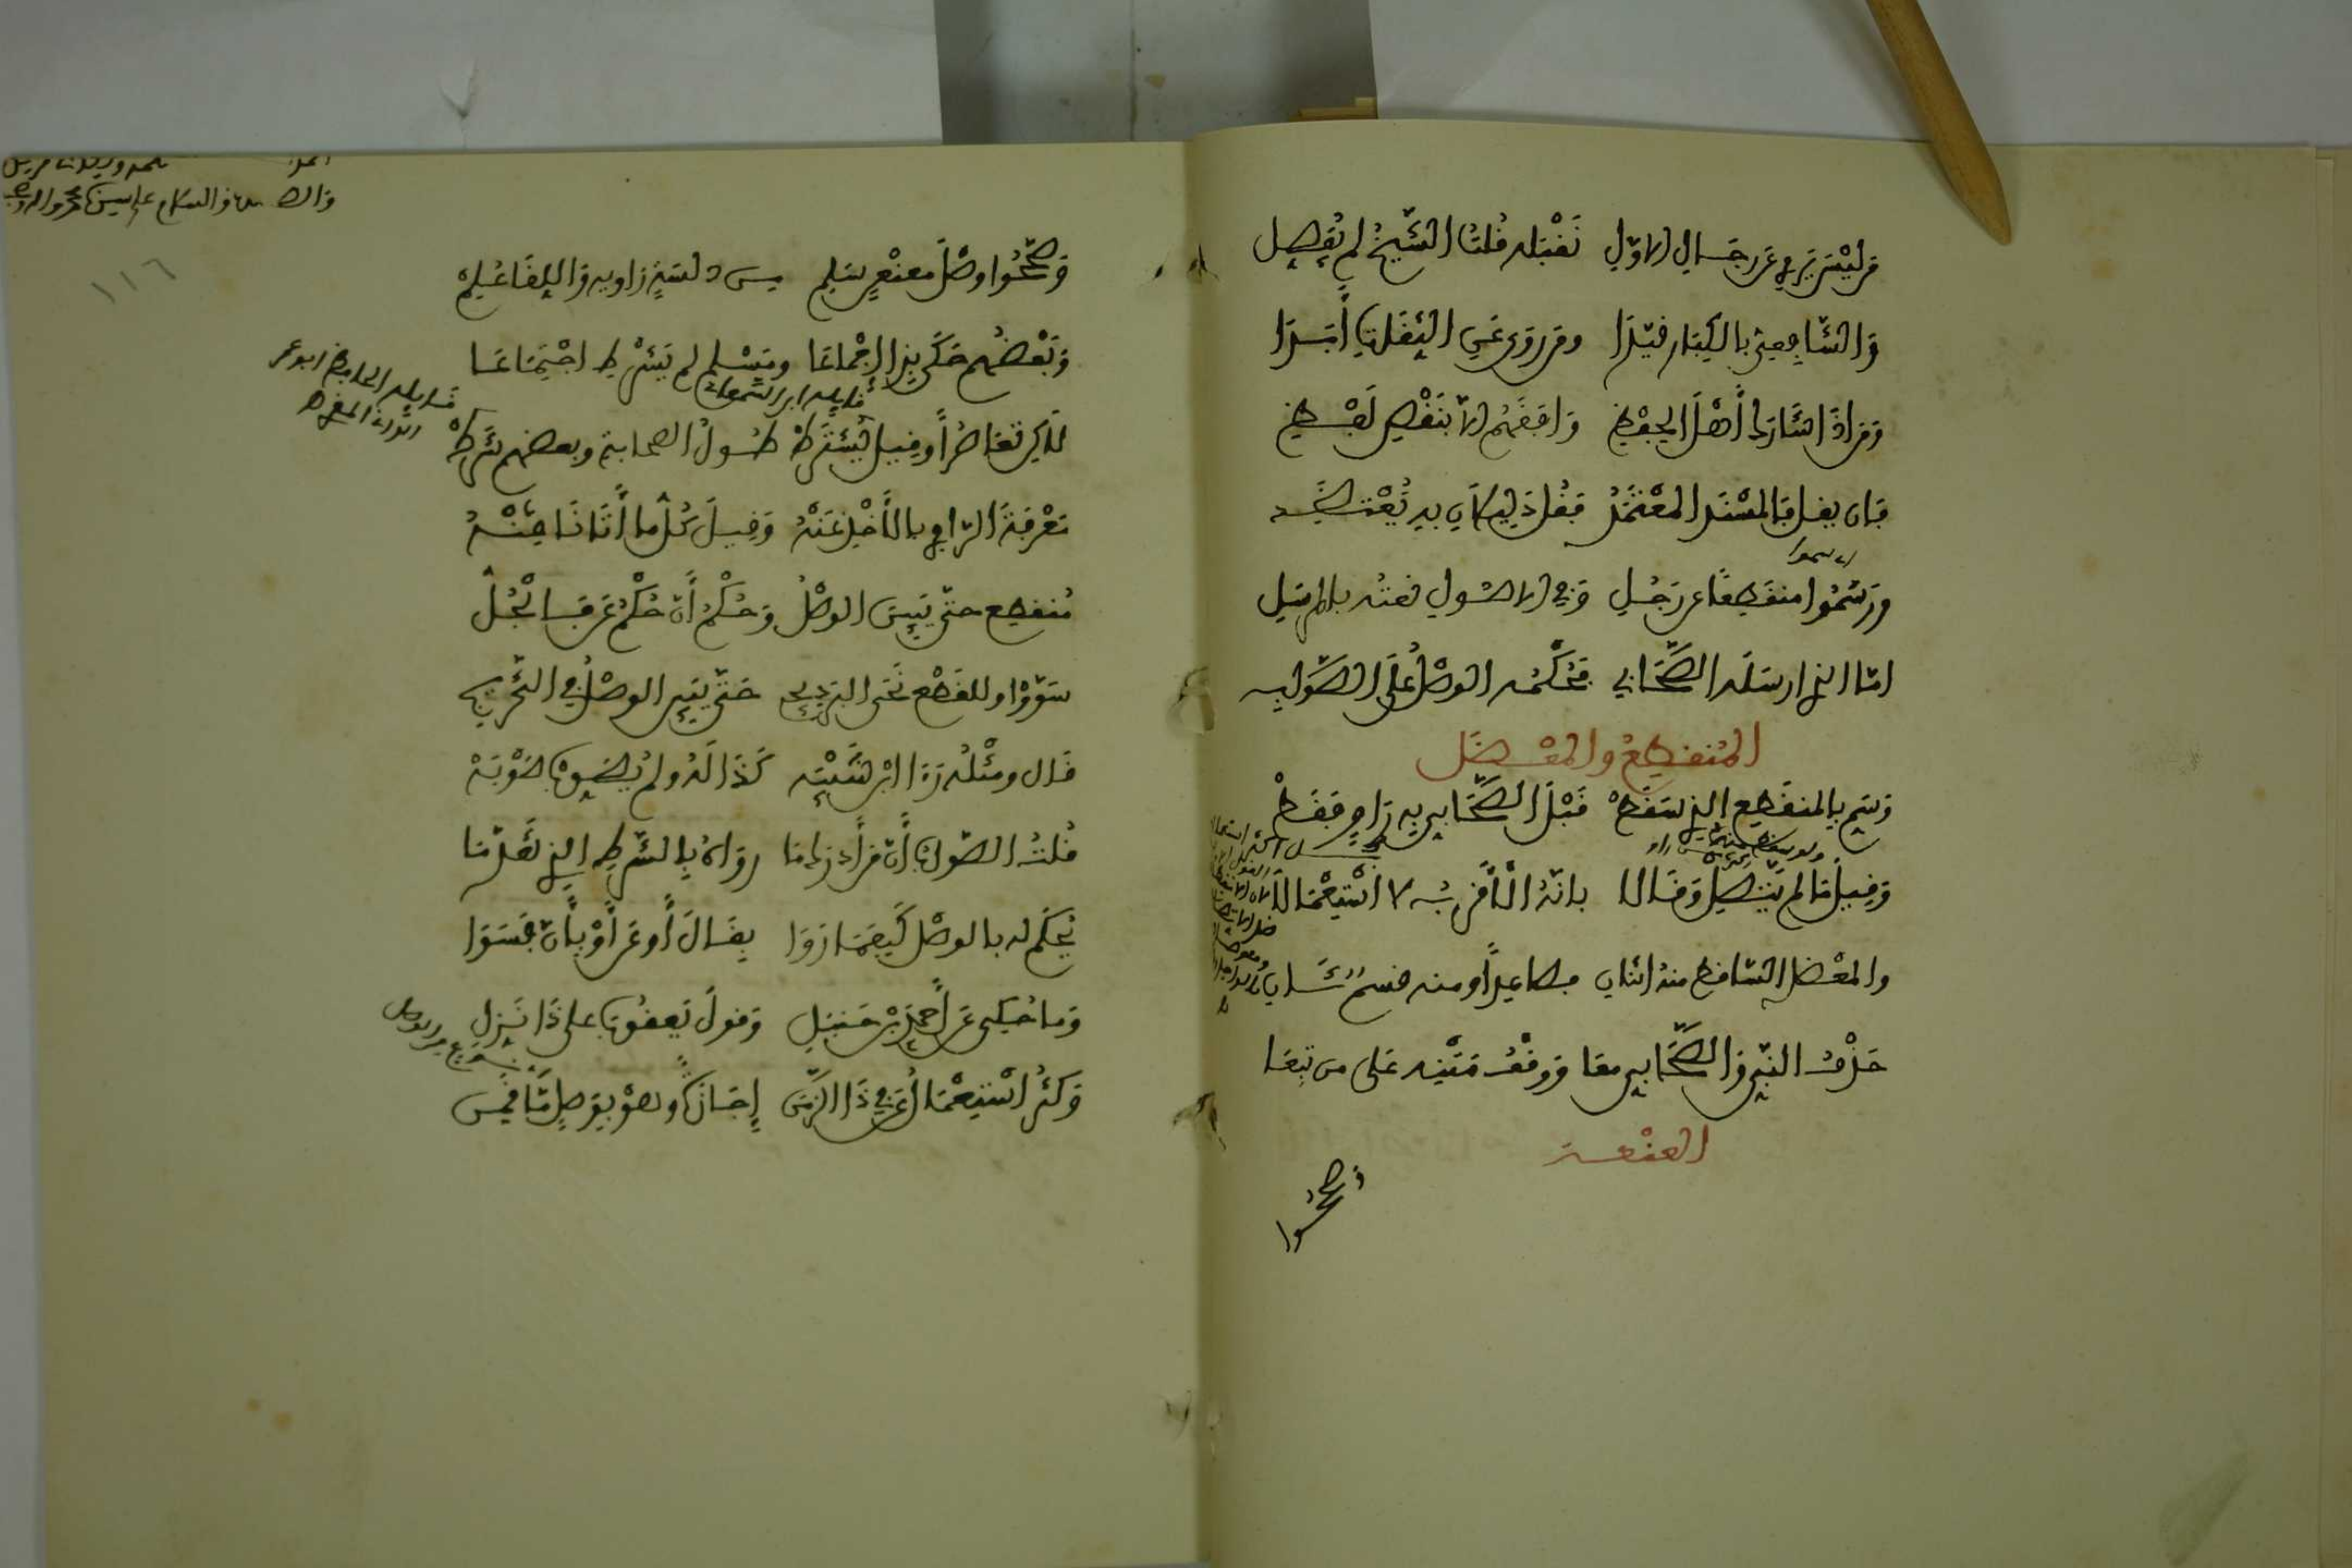 مَن لَيْسَ يَرْوِي عَن رِجَالِ الاوّلِ نَقْبَله قُلتُ الشَّيْخُ لم يُفَصِل
وَالشَّافِعِيُّ بالكِبَار قَيَّدَا ومَن رَوَى عَنِ الثِقَاتِ أَبَدَا
وَمَن إذَا شَارَكَ أَهْلَ الحِفْظِ وَافَقَهُم إلاّ بنَقْصِ لَفْظِ
فَإن يقل فَالمُسْنَد المعْتَمَدُ فقُل دَلِيلَانِ بهِ يُعْتَضَد
ورَسَمُوا منقَطِعًا عن رَجُلِ وَفِي الاصُولِ نَعتُه بالمرسَلِ
امّا الذي ارسَلَه الصَّحَابِي فَحُكْمُه الوصْلُ عَلَى الصَّوَابِ
المُنقطِعُ والمعْضَل
وَسَمِّ بِالمنقَطِع الذي سَقَطْ قَبْلَ الصَّحَابِي بِهِ رَاوٍ فَقَطْ
وَقِيلَ مَا لم يَتَّصِل وَقَالا بانّهُ الأَقرَبُ لا اسْتِعْمَالَا
والمعْضل السّاقط منهُ اثنَانِ فصَاعِدًا ومنه قسمٌ ثَانِ
حَذْفُ النَّبِيِّ وَالصَّحَابِي معَا وَوَقْفُ مَتْنِه عَلَى من تَبِعَا
العنْعنة
وصححوا
١١٦
وَصَحَّحُوا وصْلَ معنْعَنٍ سَلِم من دلسَةٍ رَاويه وَاللِقَا عُلِم
وَبَعْضُهُم حَكَى بِذَا إِجْمَاعَا ومُسْلم لم يَشْرِطِ اجْتِمَاعَا
قايله ابن السمعاني
قايله الحافظ ابو عمرو
الداني المقرئ
لَاكِن تَعَاصُرًا وقِيل يُشْتَرَطْ طُولُ الصحابةِ وبعضهم شَرَطْ
مَعْرِفَةَ الرّاوِي بالأَخْذِ عَنْهُ وَقِيلَ كُلُّ ما أَتَانَا مِنْهُ
مُنقطِع حتّى يَبِينَ الوصْلُ وَحُكْمُ أَنّ حُكْمُ عَن فَالجُلُّ
سَوّوْا وللقَطْعِ نَحَى البَردِيجِي حَتّى يَبِينَ الوصْلُ فِي التَّخْرِيجِ
قَال ومثْلُه رَأَى ابْن شَيْبَه كَذَا لَهُ ولم يُصَوِّب صَوْبَهْ
قُلتُ الصّوابُ أَنّ مَن أَدْرَكَ مَا رَوَاهُ بِالشَّرطِ الذِي تَقَدّمَا
يُحْكَم له بالوصْلِ كَيفمَا رَوَا بِقَالَ أَو عَن أَوْ بِأَنّ فَسَوَا
وَما حُكِى عَن أَحمَدَ بْنِ حَنبَلِ وَقولَ يَعقُوبٍ على ذَا نَزِّلِ
وَكَثُر اسْتِعْمَالُ عَن فِي ذَا الزّمَن إِجَازَةً وَهوْ بِوَصلٍ مَّا قَمِن